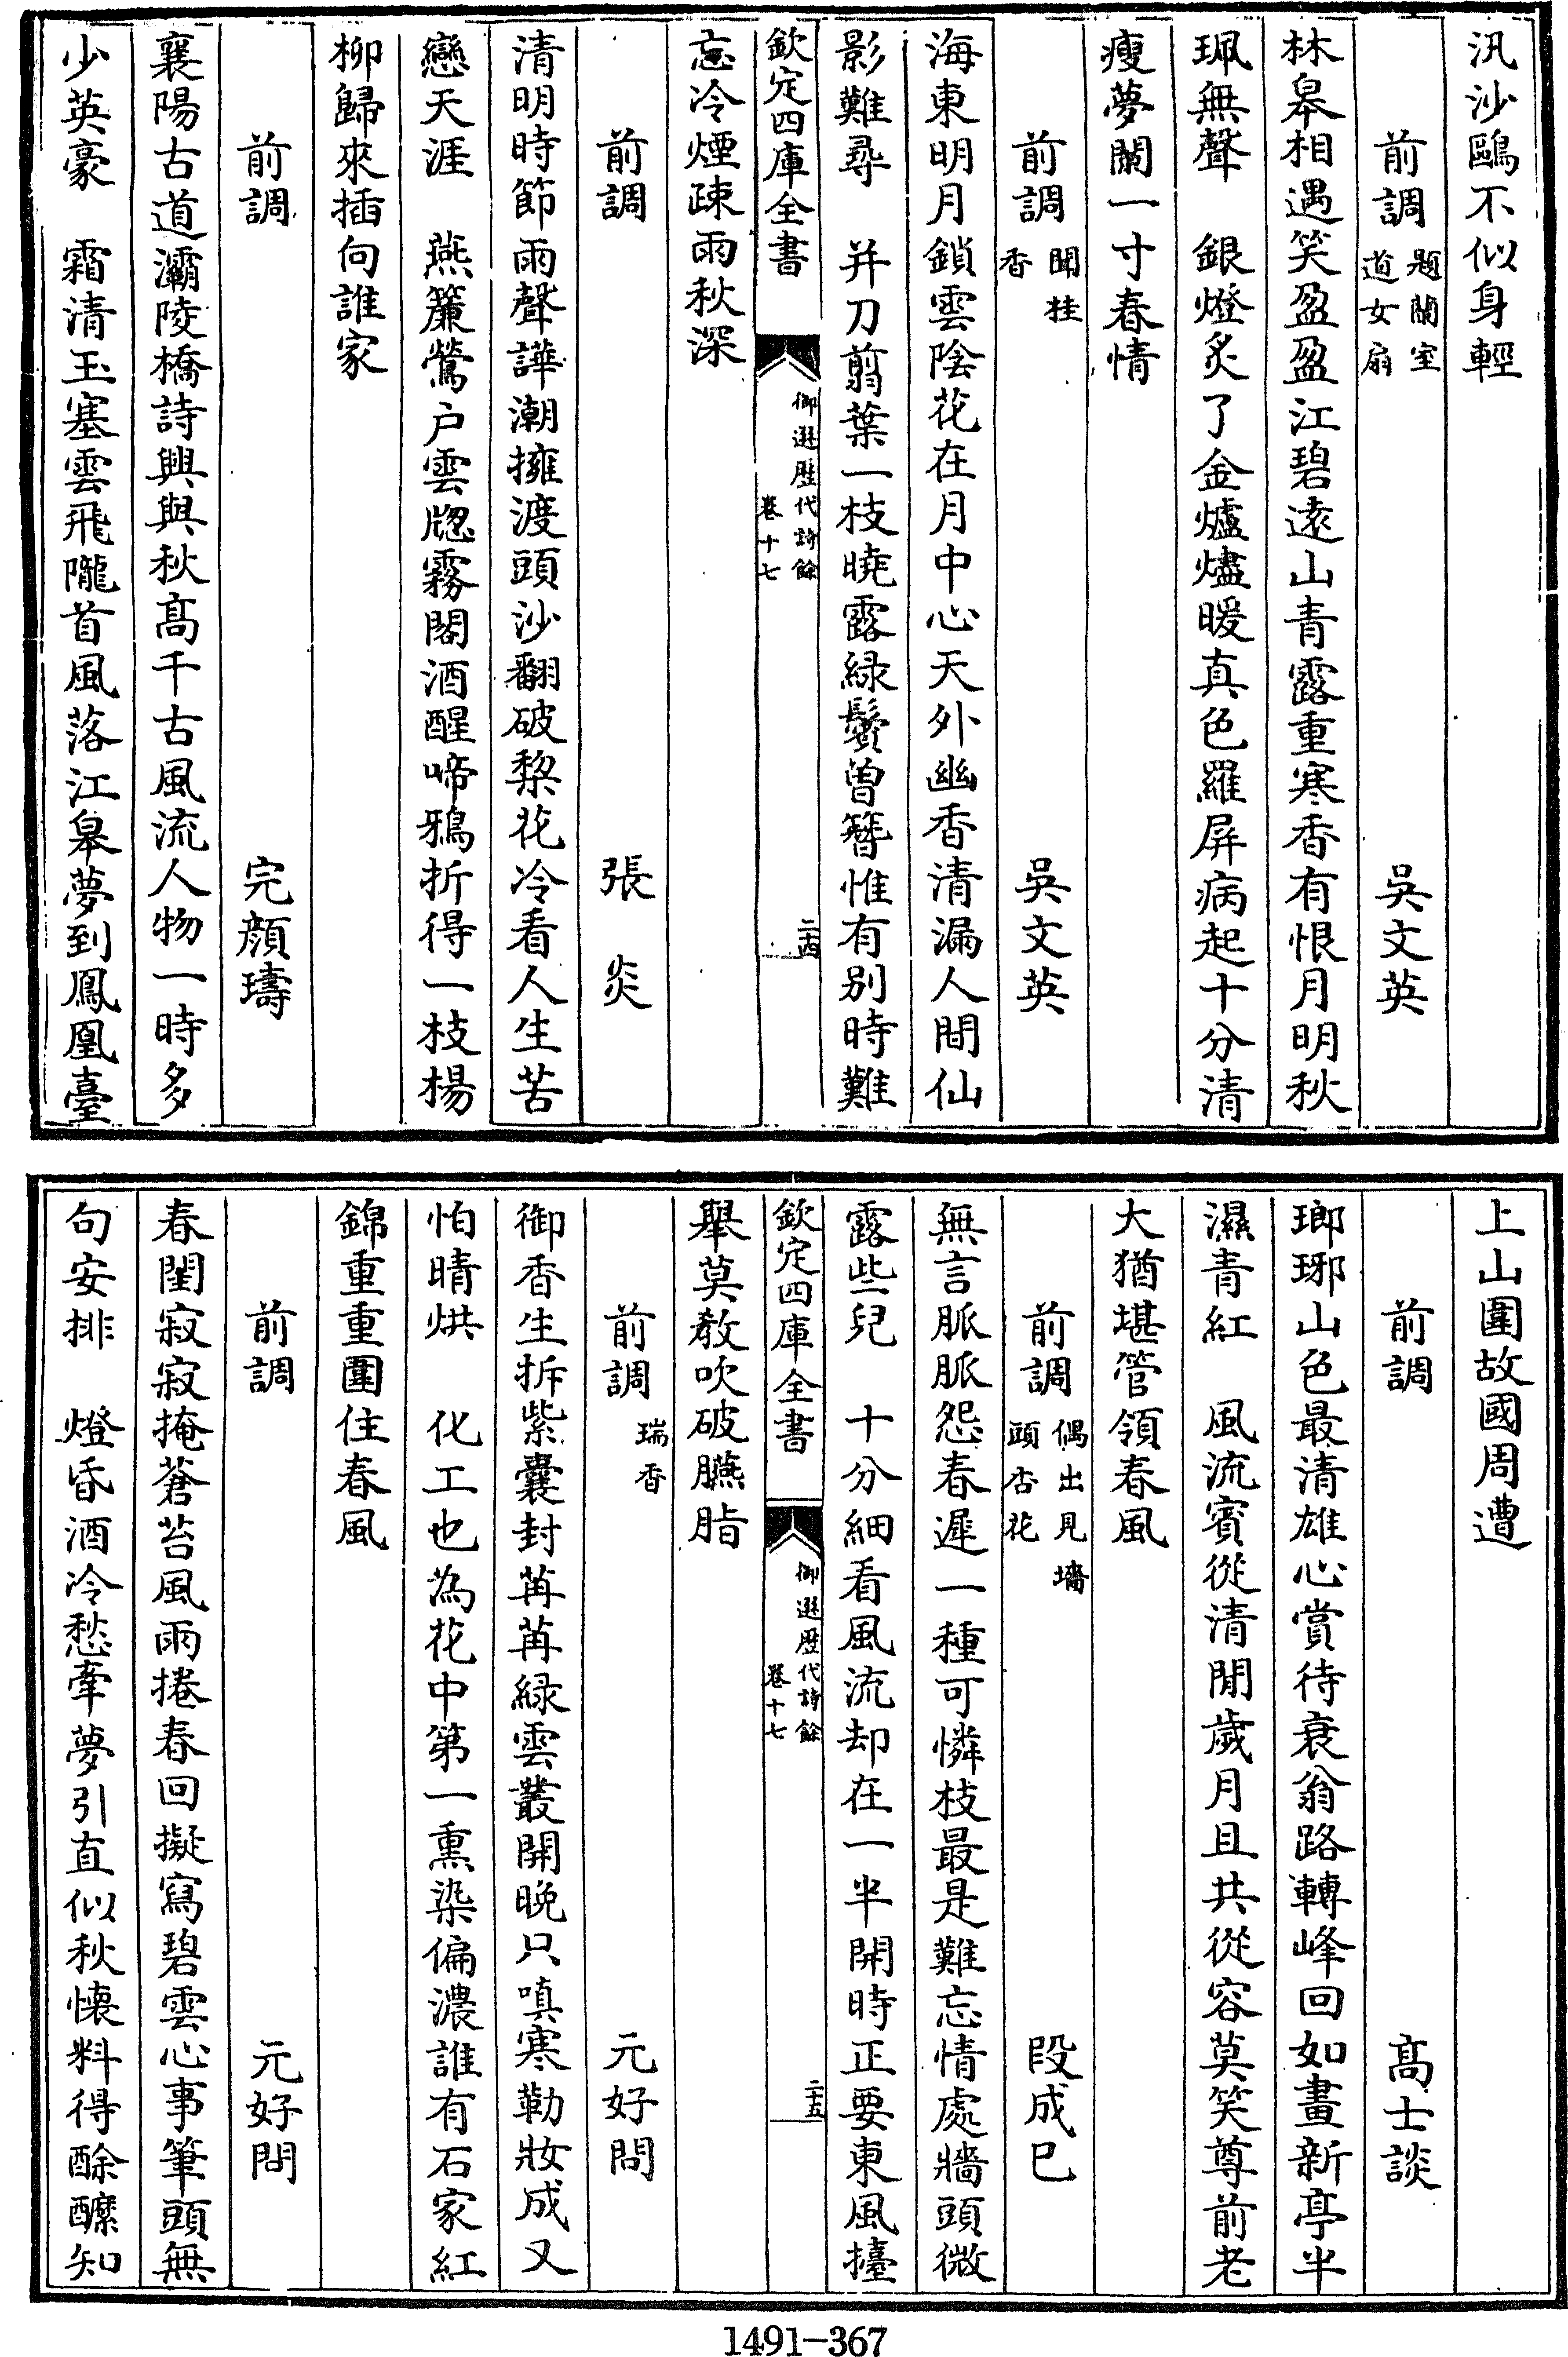 汎沙鷗不似身輕
前調 題蘭室道女扇 吳文英
林皋相遇笑盈盈江碧遠山青露重寒香有恨月明秋
珮無聲　銀燈炙了金爐燼暖真色羅屏病起十分清
瘦夢闌一寸春情
前調 聞桂香 吳文英
海東明月鎖雲陰花在月中心天外幽香清漏人間仙
影難尋　并刀翦葉一枝曉露緑鬢曾簪惟有别時難
欽定四庫全書 御選歷代詩餘 卷十七 二十四
忘冷煙疎雨秋深
前調 張炎
清明時節雨聲譁潮擁渡頭沙翻破棃花冷看人生苦
戀天涯　燕簾鶯户雲牕霧閣酒醒啼鴉折得一枝楊
柳歸來插向誰家
前調 完顔璹
襄陽古道灞陵橋詩興與秋髙千古風流人物一時多
少英豪　霜清玉塞雲飛隴首風落江皋夢到鳳凰臺
上山圍故國周遭
前調 髙士談
瑯琊山色最清雄心賞待衰翁路轉峰回如畫新亭半
濕青紅　風流賓從清閒歲月且共從容莫笑尊前老
大猶堪管領春風
前調 偶出見墻頭杏花 段成已
無言脈脈怨春遲一種可憐枝最是難忘情處牆頭微
露些兒　十分細看風流却在一半開時正要東風擡
欽定四庫全書 御選歷代詩餘 卷十七 二十五
舉莫教吹破臙脂
前調 瑞香 元好問
御香生拆紫囊封苒苒緑雲叢開晚只嗔寒勒妝成又
怕晴烘　化工也為花中第一熏染偏濃誰有石家紅
錦重重圍住春風
前調 元好問
春閨寂寂掩蒼苔風雨捲春回擬寫碧雲心事筆頭無
句安排　燈昏酒冷愁牽夢引直似秋懐料得酴醿知
1491-367